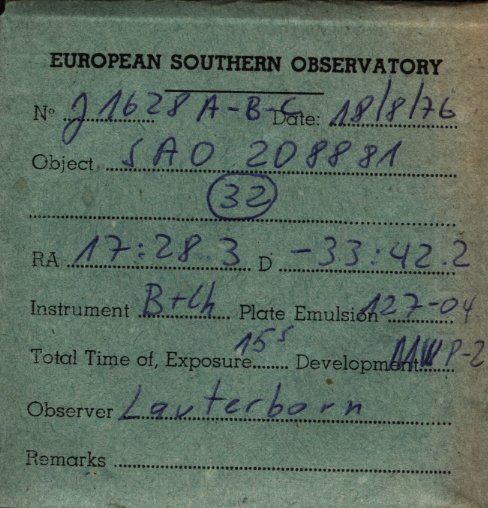 EUROPEAN SOUTHERN OBSERVATORY
Nº J1628 A-B-C Date: 18/8/76
Object SAO 208881
32
RA 17:28.3 D -33:42.2
Instrument B+Ch Plate Emulsion 127-04
Total Time of, Exposure 15s Development MWP-2
Observer Lauterborn
Remarks